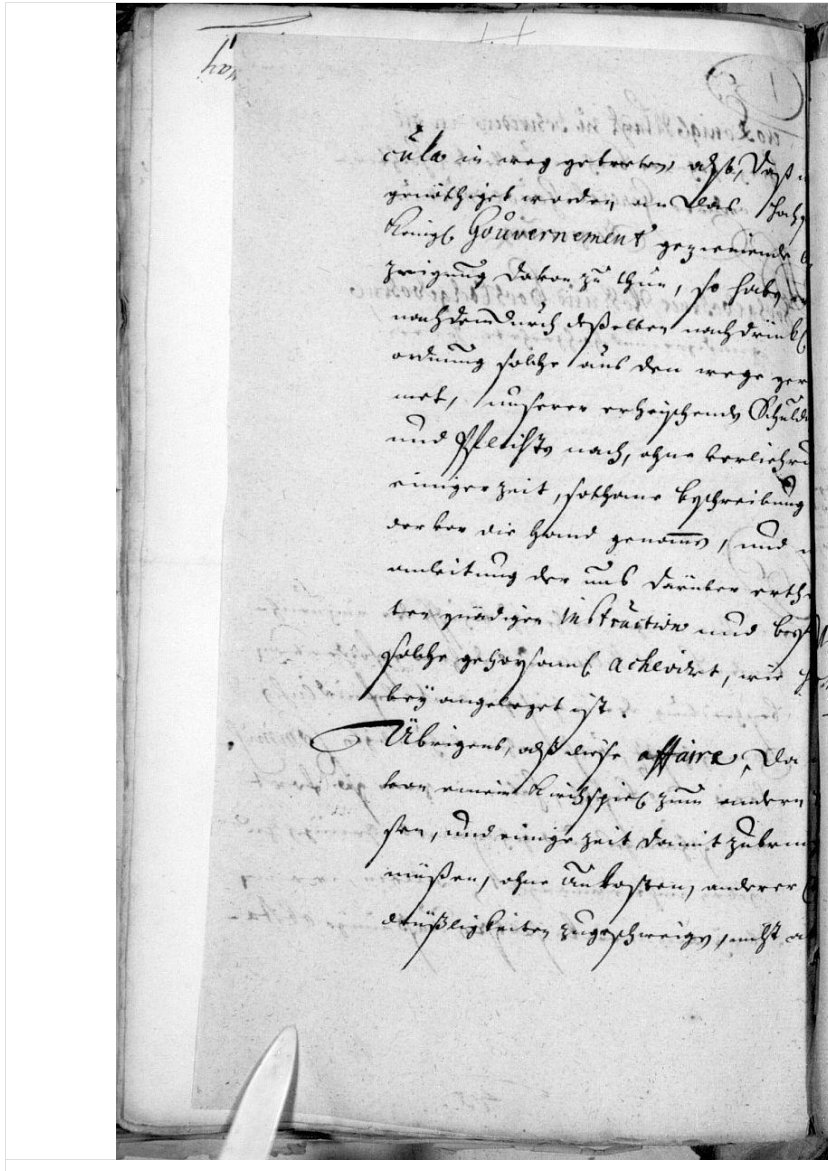 cula in weg getreten, alß, daß
genöthiget worden, an das Hoch
Königl Gouvernement geziemende
zeigung davon zu thun, so haben
nachdem durch deßelben nachdrückl
ordnung solche aus dem wege ger
met, unserer erheischenden Schuld
und Pflicht nach, ohne verliehru
einiger zeit, sothane beschreibung
der vor die hand genommen, und
anleitung der uns darüber erth
ten gnädigen instruction und bey
solche gehorsaml achevirt, wie
bey angeleget ist.
Übrigens, alß diese affaire, da
von einem Kirchspiel zum andern
sen, und einige zeit damit zubrin
müßen, ohne Unkosten, anderer
drüßligkeiten zugeschweigen, nicht